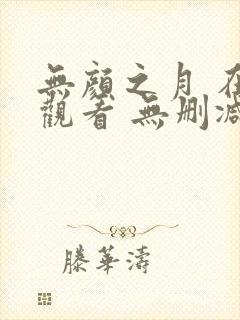 無顏之月 在
觀看 無刪減
滕華濤